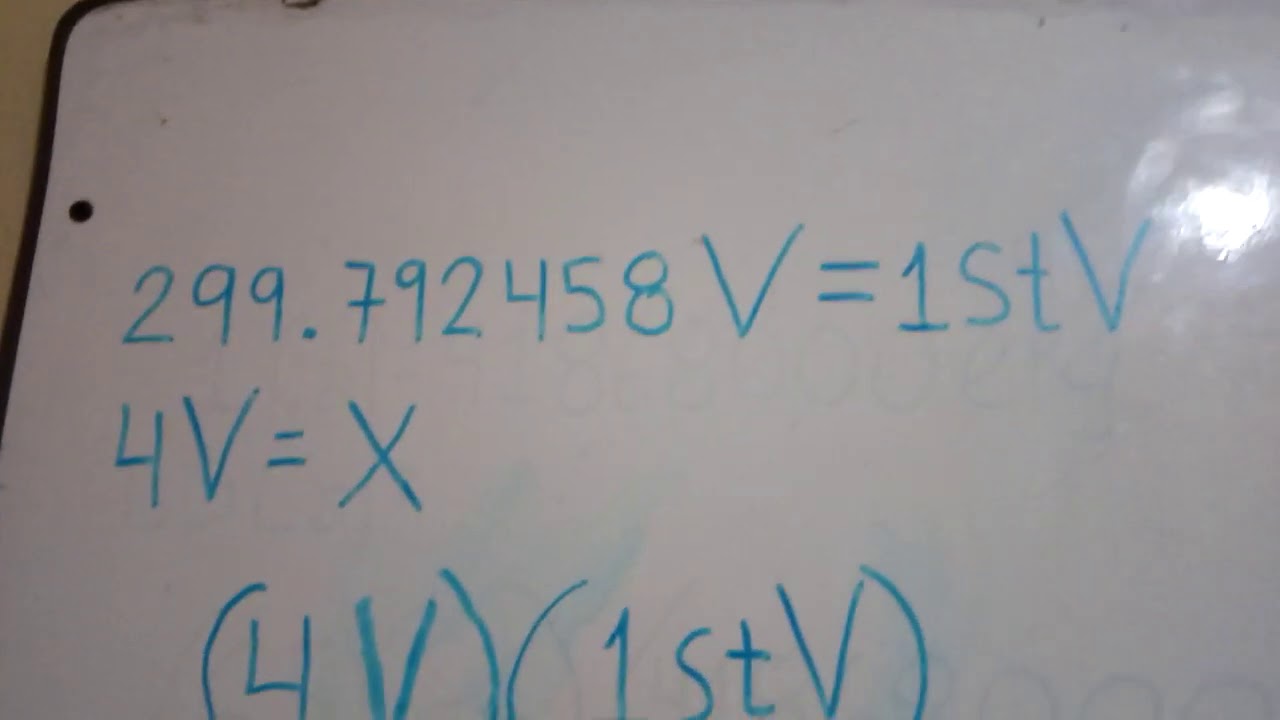 299.792458 V = 1StV
4V = X
(4V)(1stV)